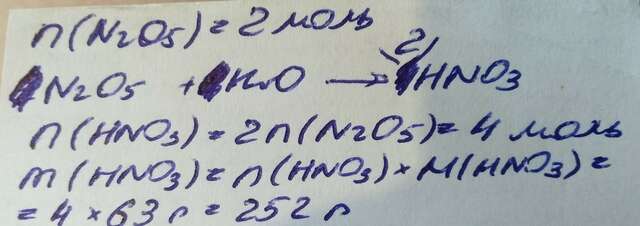 n(N2O5) = 2 моль
N2O5 + H2O → 2HNO3
n(HNO3) = 2n(N2O5) = 4 моль
m(HNO3) = n(HNO3) × M(HNO3) =
= 4 × 63 г = 252 г